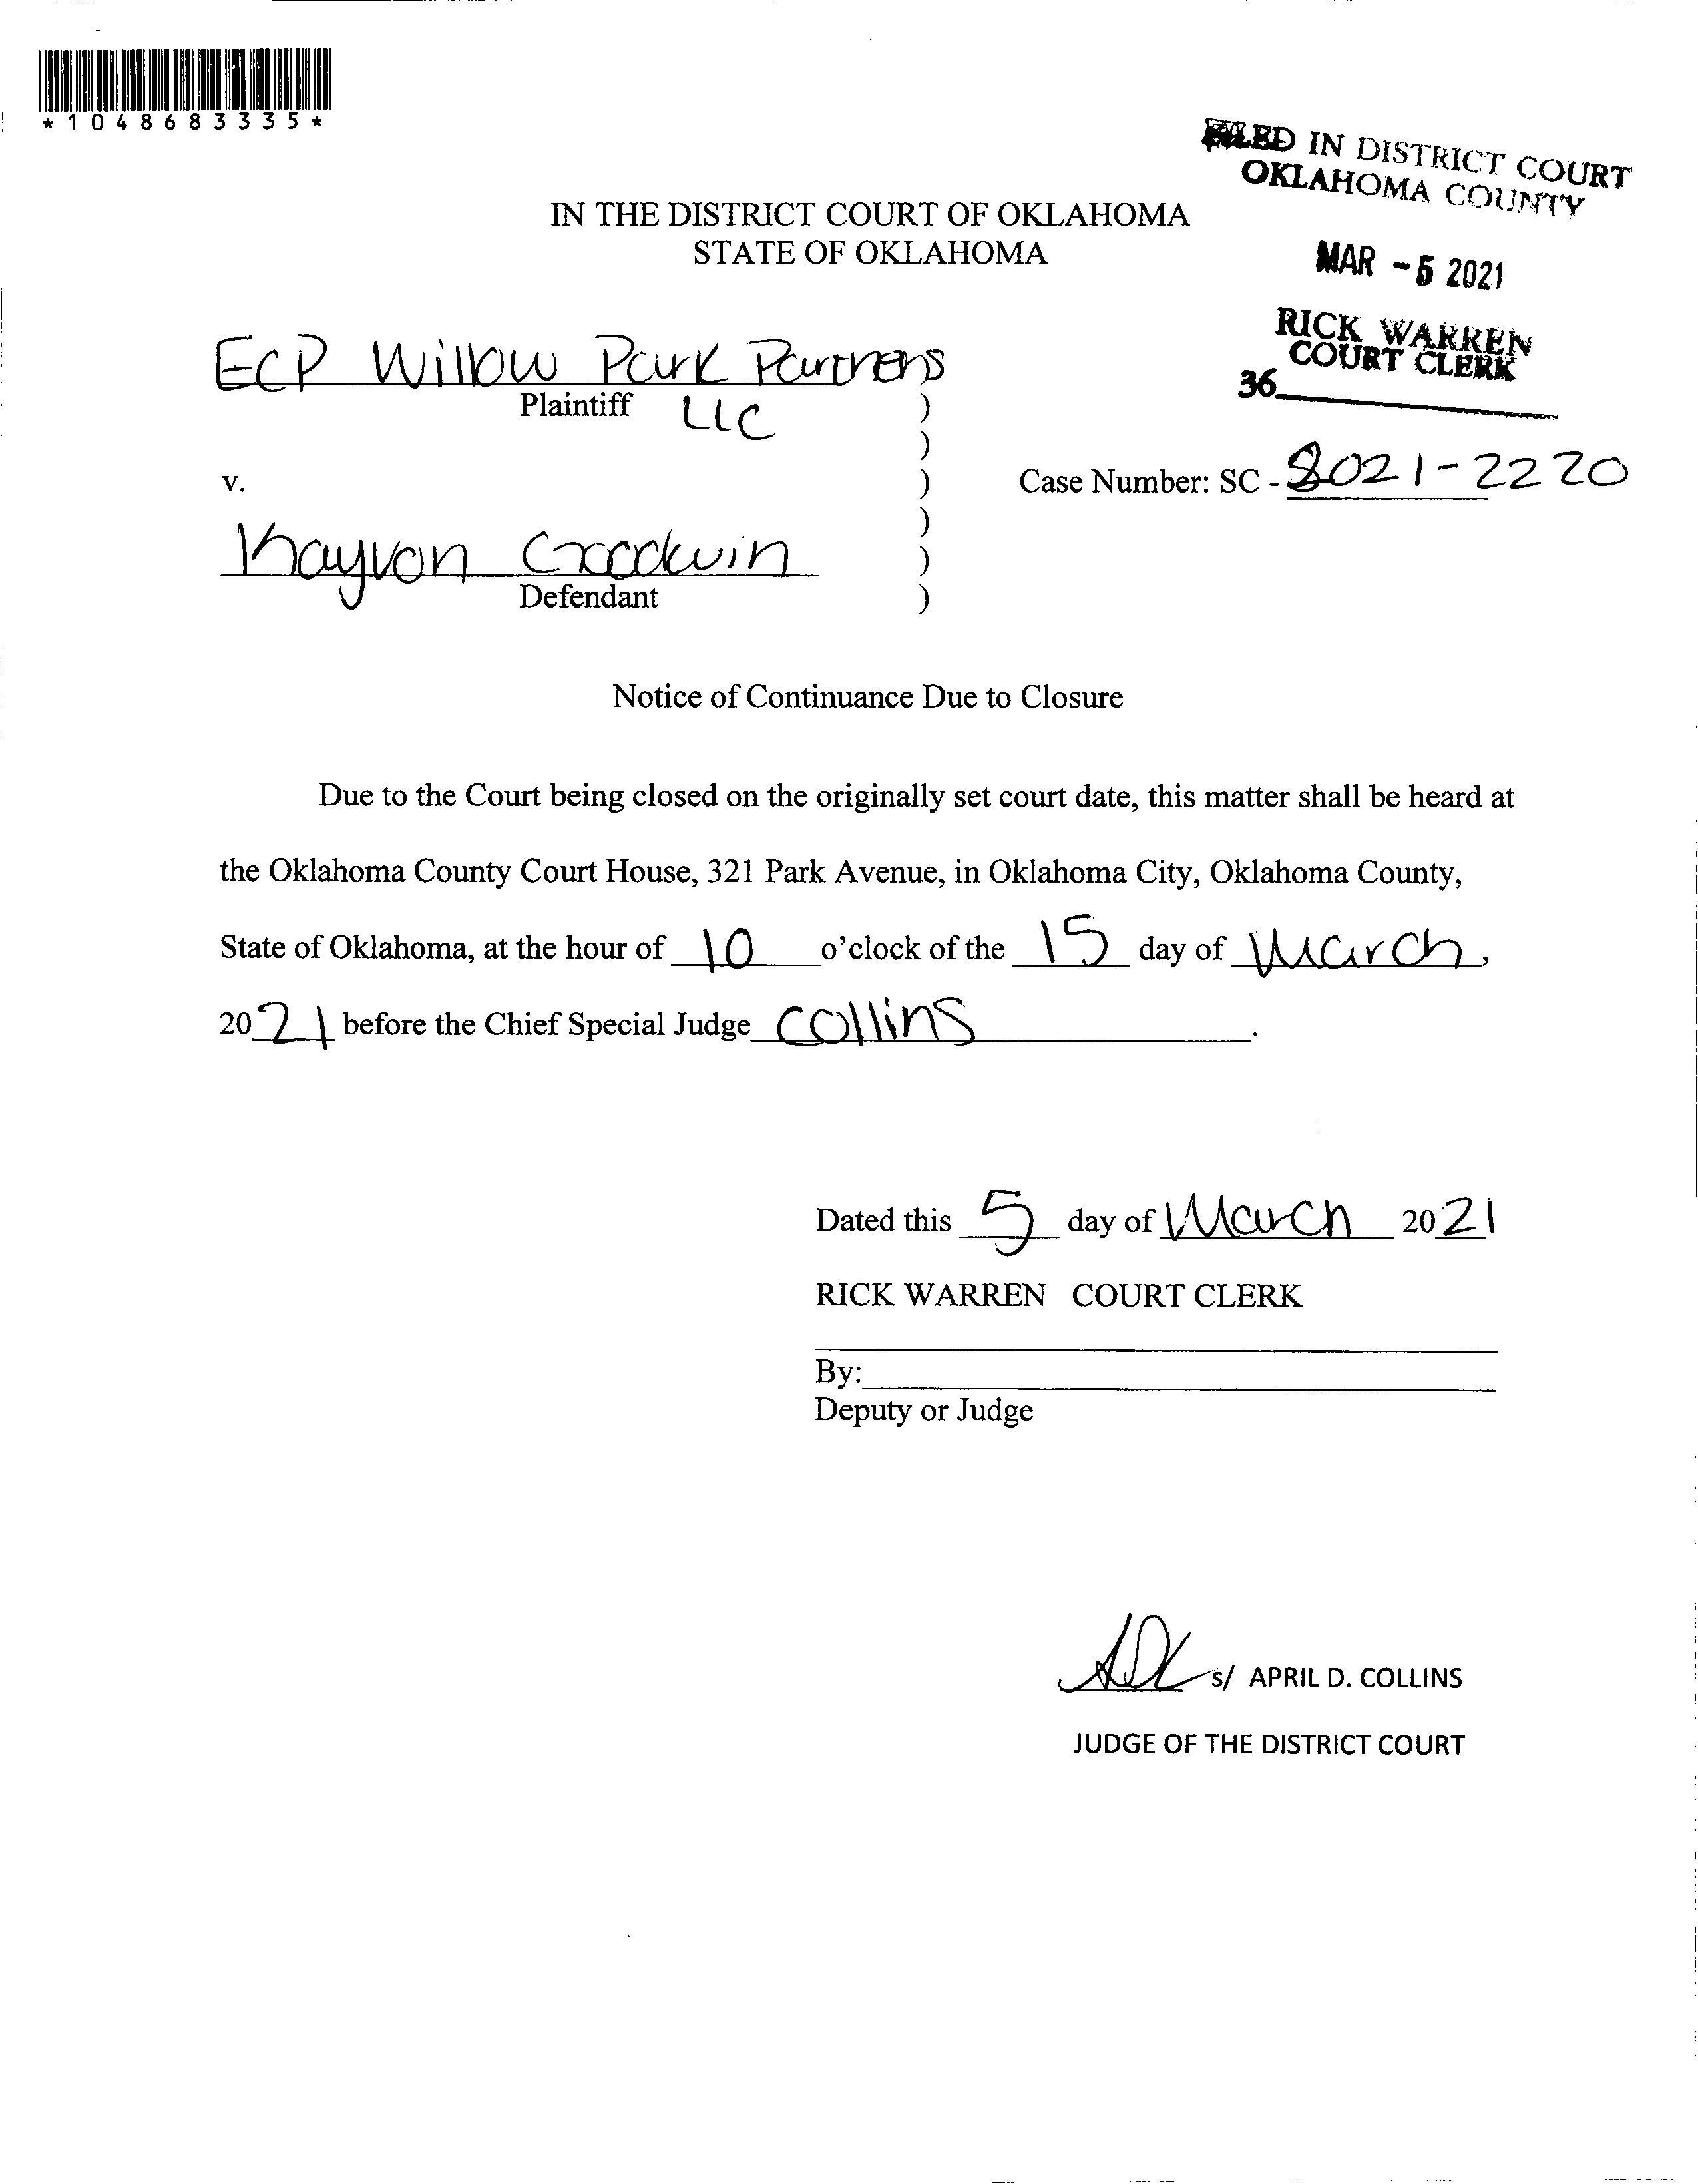 *1048683335*
FILED IN DISTRICT COURT
OKLAHOMA COUNTY
IN THE DISTRICT COURT OF OKLAHOMA
STATE OF OKLAHOMA
MAR - 5 2021
RICK WARREN
COURT CLERK
36
ECP Willow Park Partners
Plaintiff LLC )
)
v. ) Case Number: SC - 2021-2220
)
Kayvon Goodwin )
Defendant )
Notice of Continuance Due to Closure
Due to the Court being closed on the originally set court date, this matter shall be heard at
the Oklahoma County Court House, 321 Park Avenue, in Oklahoma City, Oklahoma County,
State of Oklahoma, at the hour of 10 o'clock of the 15 day of March,
2021 before the Chief Special Judge Collins.
Dated this 5 day of March 2021
RICK WARREN COURT CLERK
By:
Deputy or Judge
ADC s/ APRIL D. COLLINS
JUDGE OF THE DISTRICT COURT